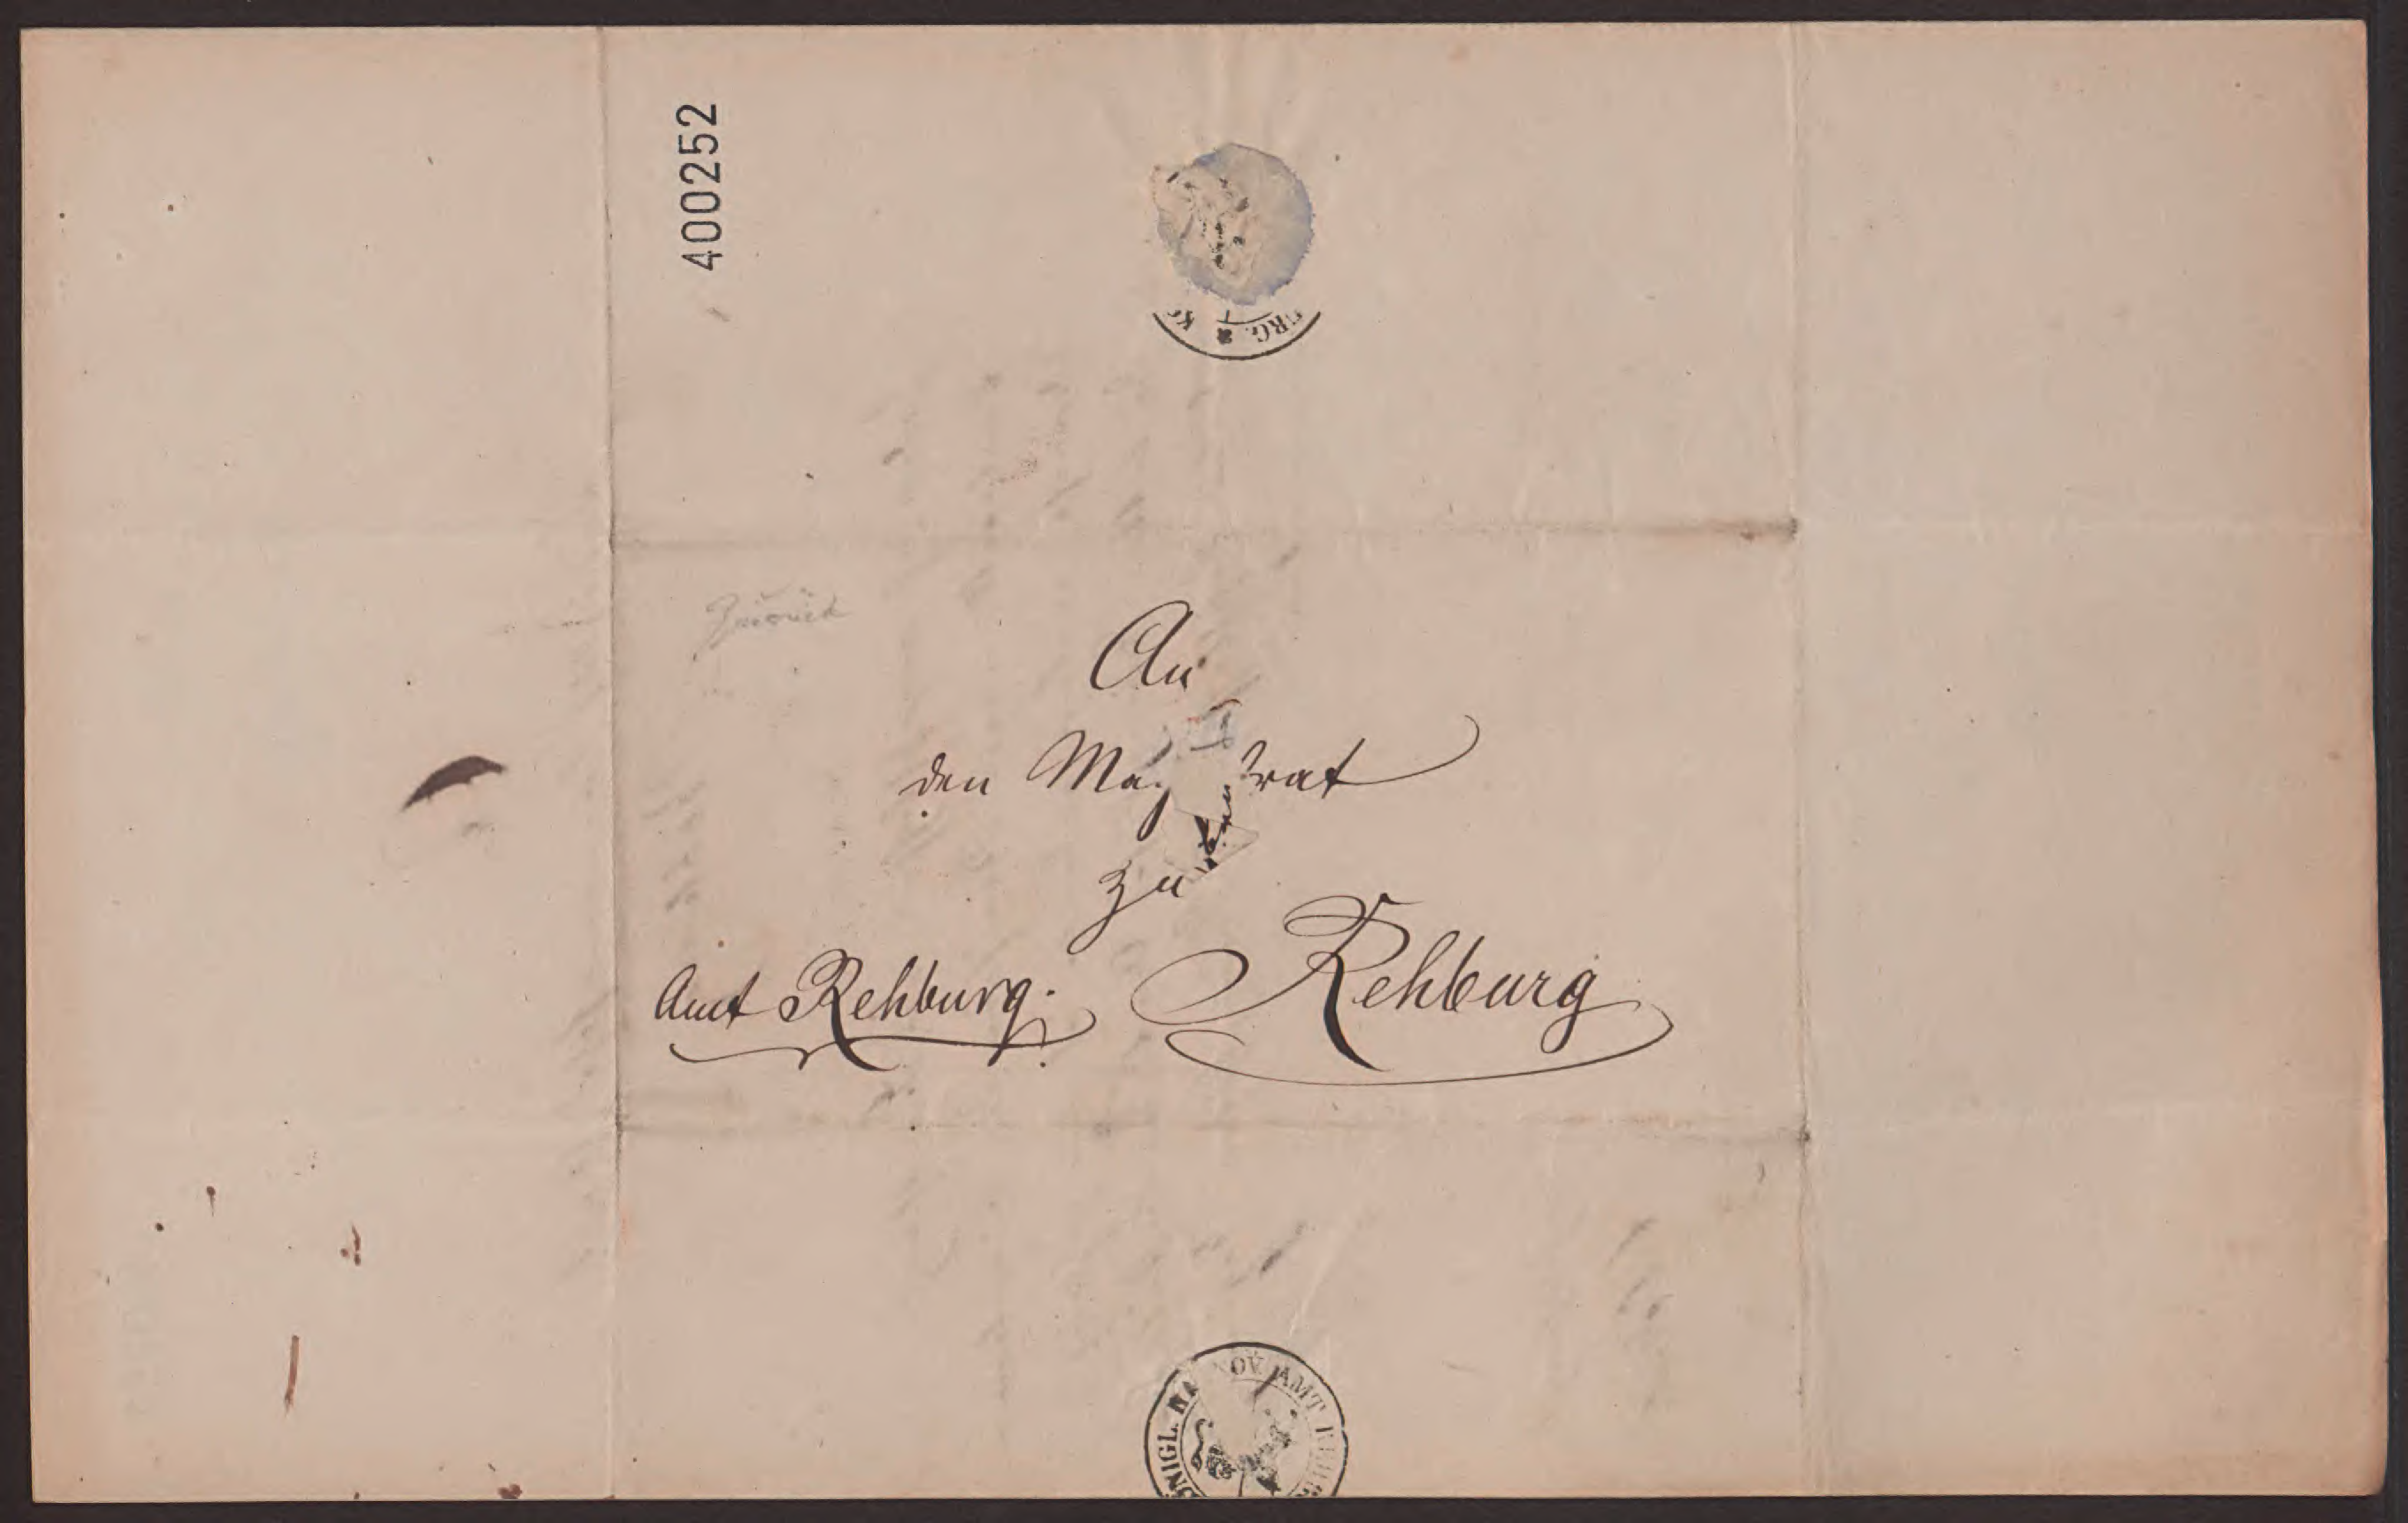 400252
RG. * K
Zurück
An
den Mag trat
zu
Rehburg
Amt Rehburg.
ÖNIGL. HA NOV. AMT REHB